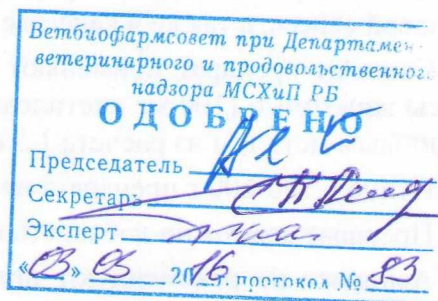 Ветбиофармсовет при Департамен-
ветеринарного и продовольственног.
надзора МСХиП РБ
ОДОБРЕНО
Председатель
Секретарь
Эксперт
«03» 03 2016. протокол № 83